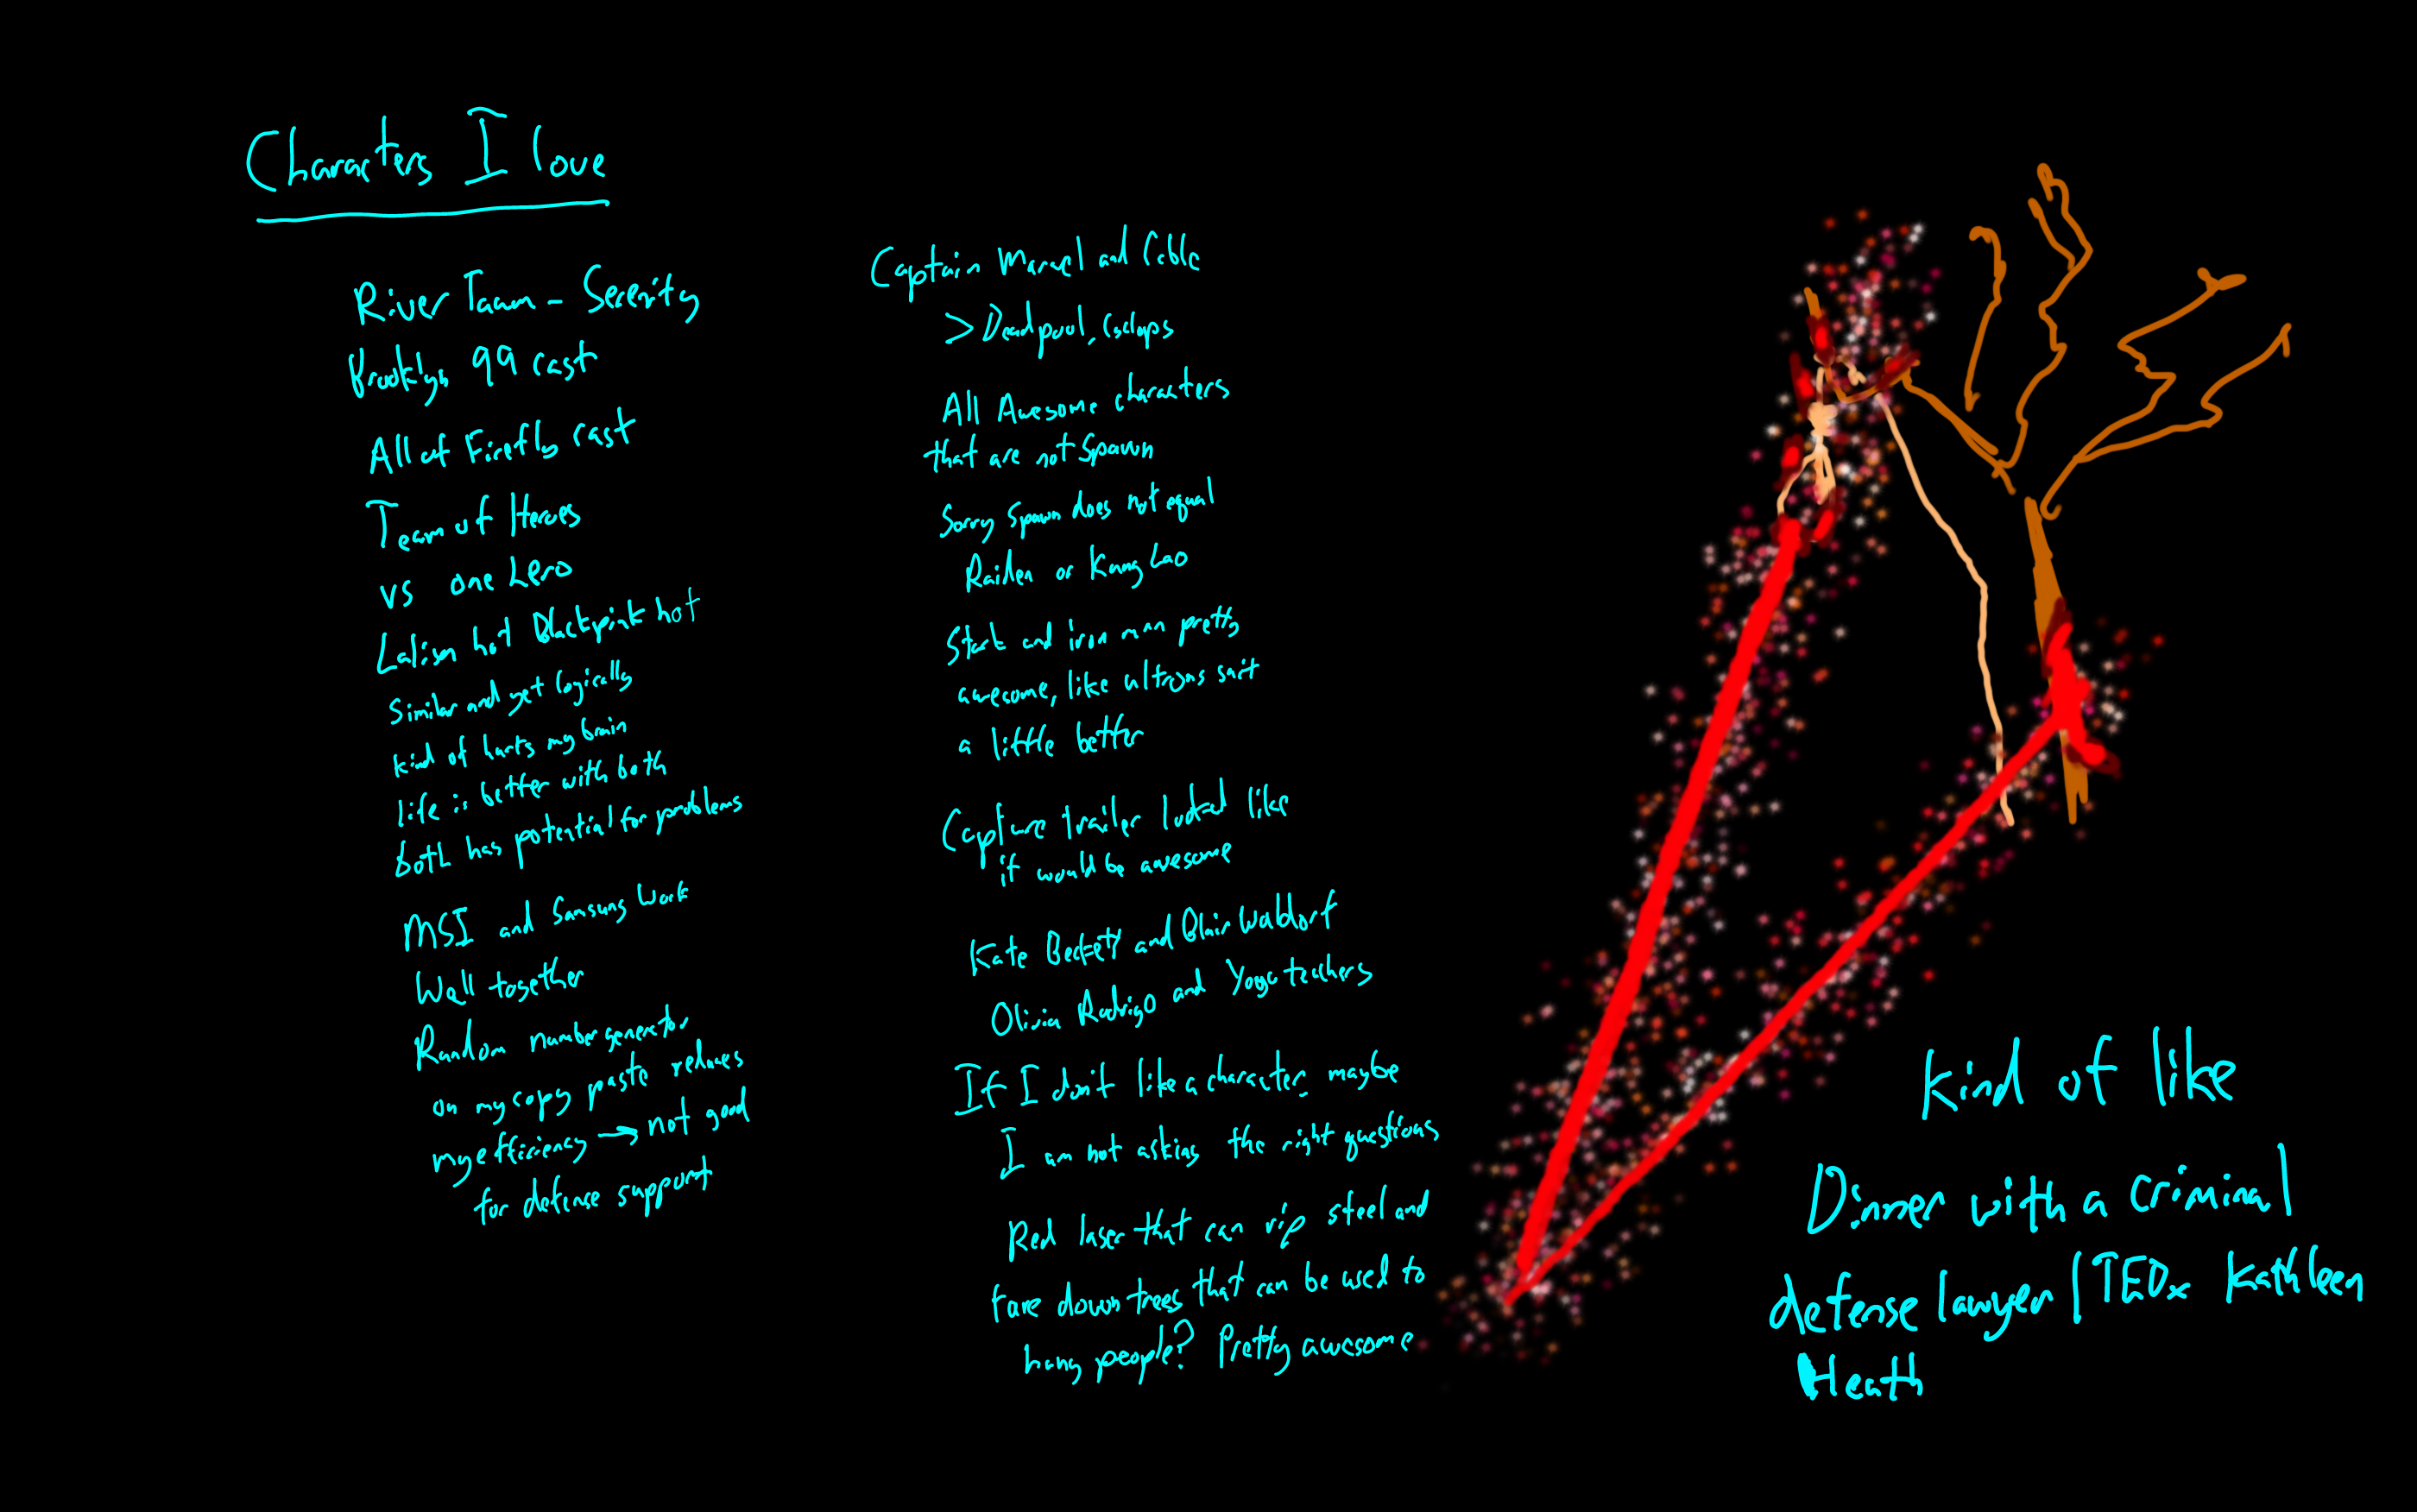 Characters I love
River Taam - Serenity
Brooklyn 99 cast
All of Firefly cast
Team of Heroes
vs one hero
Lalisa hot Blackpink hot
Similar and yet logically
kind of hurts my brain
life is better with both
both has potential for problems
MSI and Samsung work
well together
Random number generator
on my copy paste reduces
my efficiency → not good
for defense support
Captain Marvel and Cable
> Deadpool,
All Awesome characters
that are not Spawn
Sorry Spawn does not equal
Raiden or Kung Lao
Stark and iron man pretty
awesome, like ultrons suit
a little better
Capture trailer looked like
it would be awesome
Kate Beckett and Blair Waldorf
Olivia Rodrigo and Yoga teachers
If I don't like a character, maybe
I am not asking the right questions
Red laser that can rip steel and
down trees that can be used to
hang people? Pretty awesome
Kind of like
Dinner with a criminal
defense lawyer | TEDx Kathleen
Heath